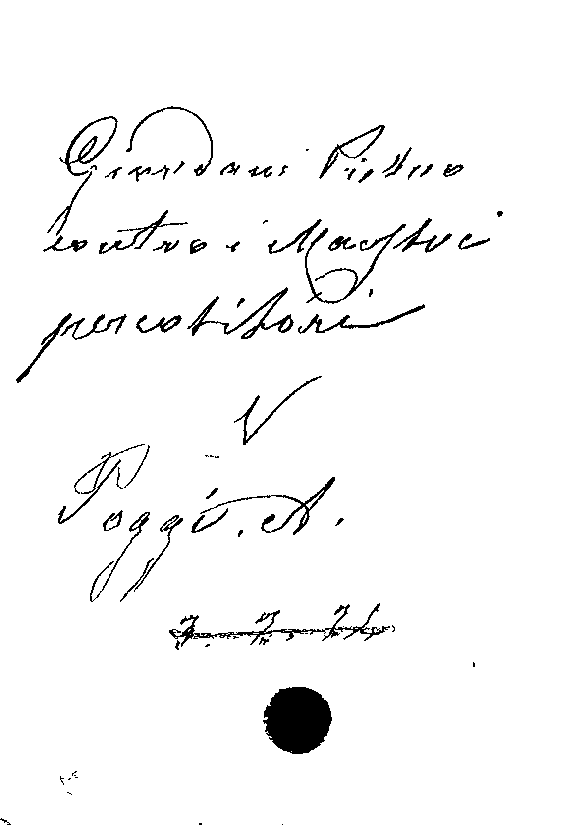 Giordani Pietro
contro i Maestri
percotitori
V
Poggi. A.